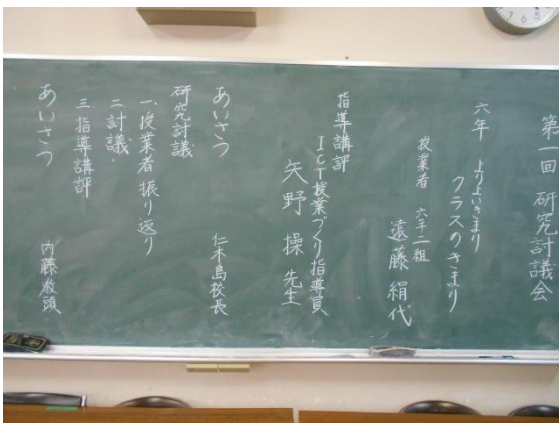 第一回 研究討議会
六年 よりよいきまり
クラスのきまり
授業者 六年二組
遠藤絹代
指導講評
ICT授業づくり指導員
矢野操先生
あいさつ 仁木島校長
研究討議
一、授業者振り返り
二 討議
三 指導講評
あいさつ 内藤教頭